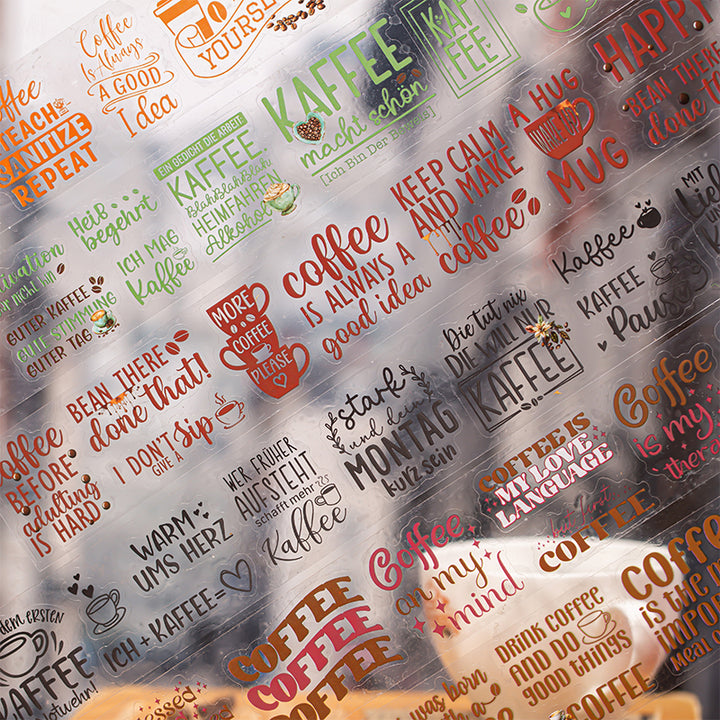 Coffee
TEACH
SANITIZE
REPEAT
Coffee
Is Always
A GOOD
Idea
YOURSE
KAFFEE
macht schön
[Ich Bin Der Beweis]
KAF
FEE
HAPPY
BEAN THERE
done th
Heiß
begehrt
EIN GEDICHT DIE ARBEIT
KAFFEE
BlahBlahBlah
HEIMFAHREN
Alkohol
ICH MAG
Kaffee
GUTER KAFFEE
GUTE STIMMUNG
GUTER TAG
KEEP CALM
AND MAKE
coffee
A HUG
MADE BY
MUG
coffee
IS ALWAYS A
good idea
MORE
COFFEE
PLEASE
BEAN THERE
done that!
I DON'T
GIVE A
Sip
Coffee
BEFORE
adulting
IS HARD
Kaffee
KAFFEE
Pause
MIT
Die tut nix
DIE WILL NUR
KAFFEE
stark
und dein
MONTAG
kurz sein
WER FRÜHER
AUFSTEHT
schafft mehr
Kaffee
WARM
UMS HERZ
ICH + KAFFEE =
dem ERSTEN
KAFFEE
Notwehr!
Coffee
is my
COFFEE IS
MY LOVE
LANGUAGE
but first
COFFEE
Coffee
on my
mind
COFFEE
COFFEE
COFFEE
DRINK COFFEE
AND DO
GOOD THINGS
COFFEE
IS THE M
IMPO
MEAL
was born
with a
COFFEE